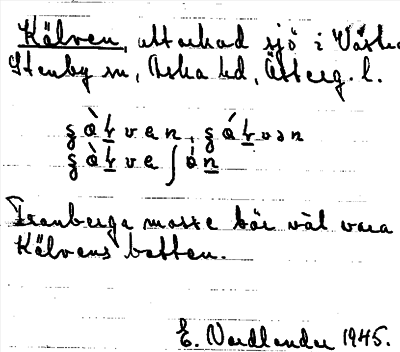 Kälven, uttorkad sjö i Västra
Stenby sn, Aska hd, Österg. l.
Tranberga mosse bör väl vara
Kälvens botten.
E. Nordlander 1945.